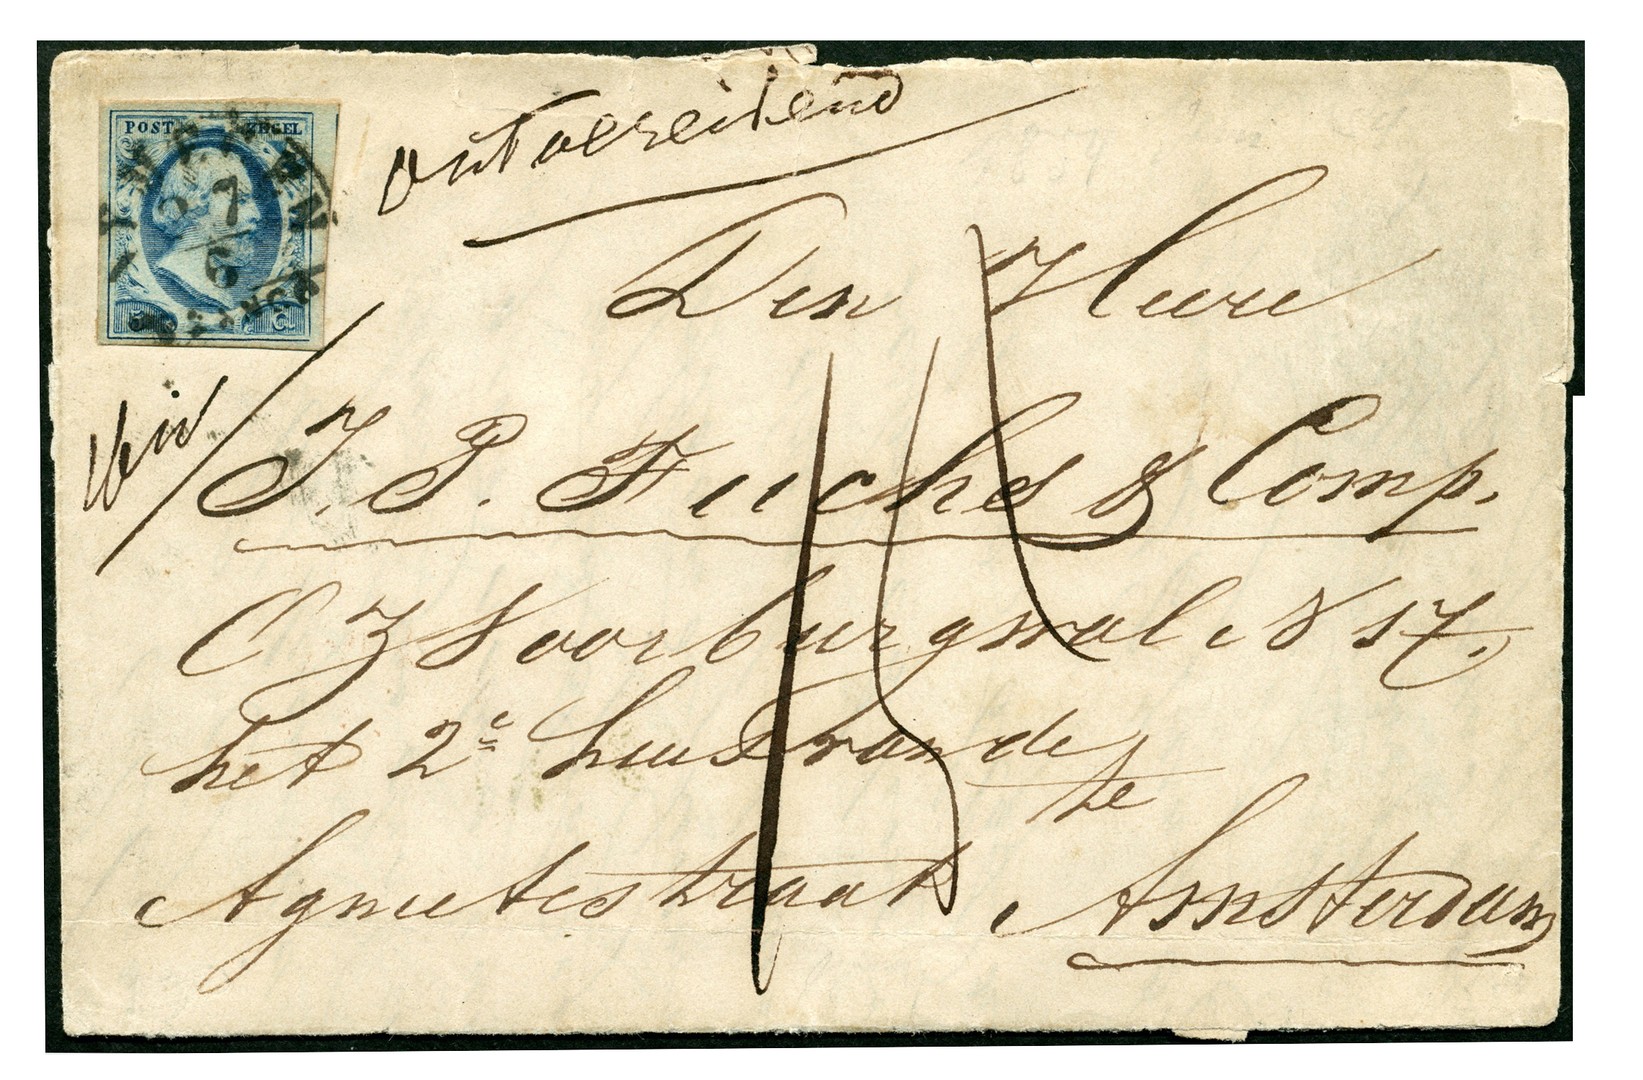 POST ZEGEL
7
6
FRANCO
5 Ct
ontoereikend
Den Heere
J. P. Fuchs & Comp.
O Z Voorburgwal N 17.
het 2e huis van de
te
Agnietestraat Amsterdam